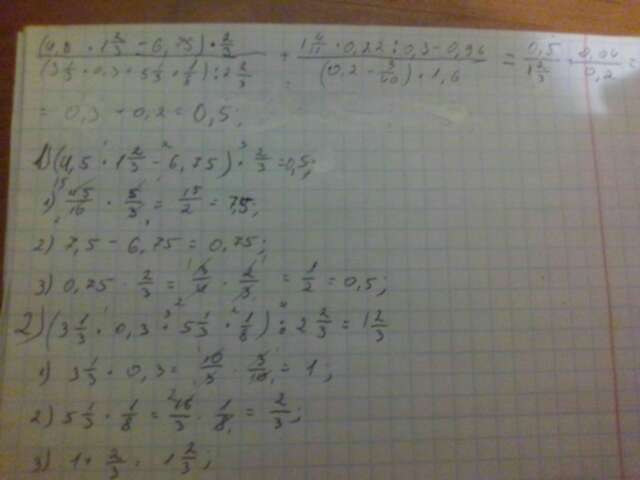 (4,5 · 1 2/3 − 6,75) · 2/3 / (3 1/3 · 0,3 + 5 1/3 · 1/8) : 2 2/3 + 1 4/11 · 0,22 : 0,3 − 0,96 / (0,2 − 3/40) · 1,6 = 0,5 / 1 2/3 + 0,04 / 0,2 =
= 0,3 + 0,2 = 0,5;
1) (4,5 · 1 2/3 − 6,75) · 2/3 = 0,5;
1) 45/10 · 5/3 = 15/2 = 7,5;
2) 7,5 − 6,75 = 0,75;
3) 0,75 · 2/3 = 3/4 · 2/3 = 1/2 = 0,5;
2) (3 1/3 · 0,3 + 5 1/3 · 1/8) : 2 2/3 = 1 2/3
1) 3 1/3 · 0,3 = 10/3 · 3/10 = 1;
2) 5 1/3 · 1/8 = 16/3 · 1/8 = 2/3;
3) 1 + 2/3 = 1 2/3;